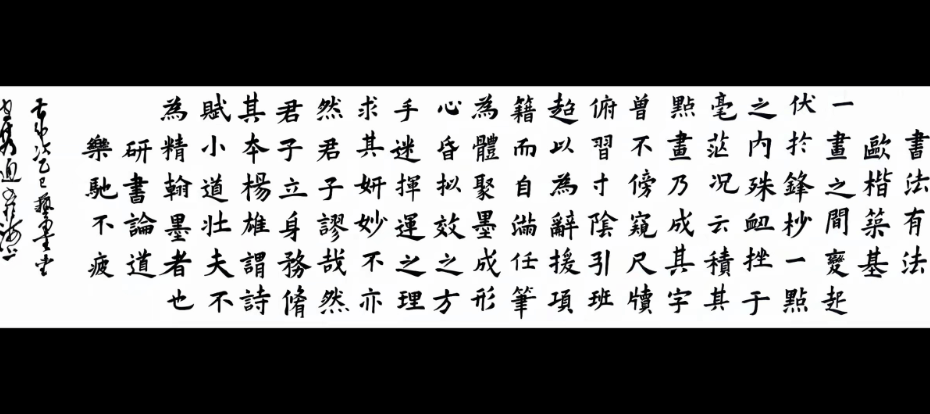 書法有法
歐楷築基
一畫之間變起
伏於鋒杪一點
之內殊衄挫于
毫茫况云積其
點畫乃成其字
曽不傍窺尺牘
俯習寸陰引班
超以為辭援項
籍而自滿任筆
為體聚墨成形
心昏拟效之方
手迷揮運之理
求其妍妙不亦
然君子謬哉然
君子立身務脩
其本楊雄謂詩
賦小道壯夫不
為精翰墨者也
研書論道
樂馳不疲
次乙巳